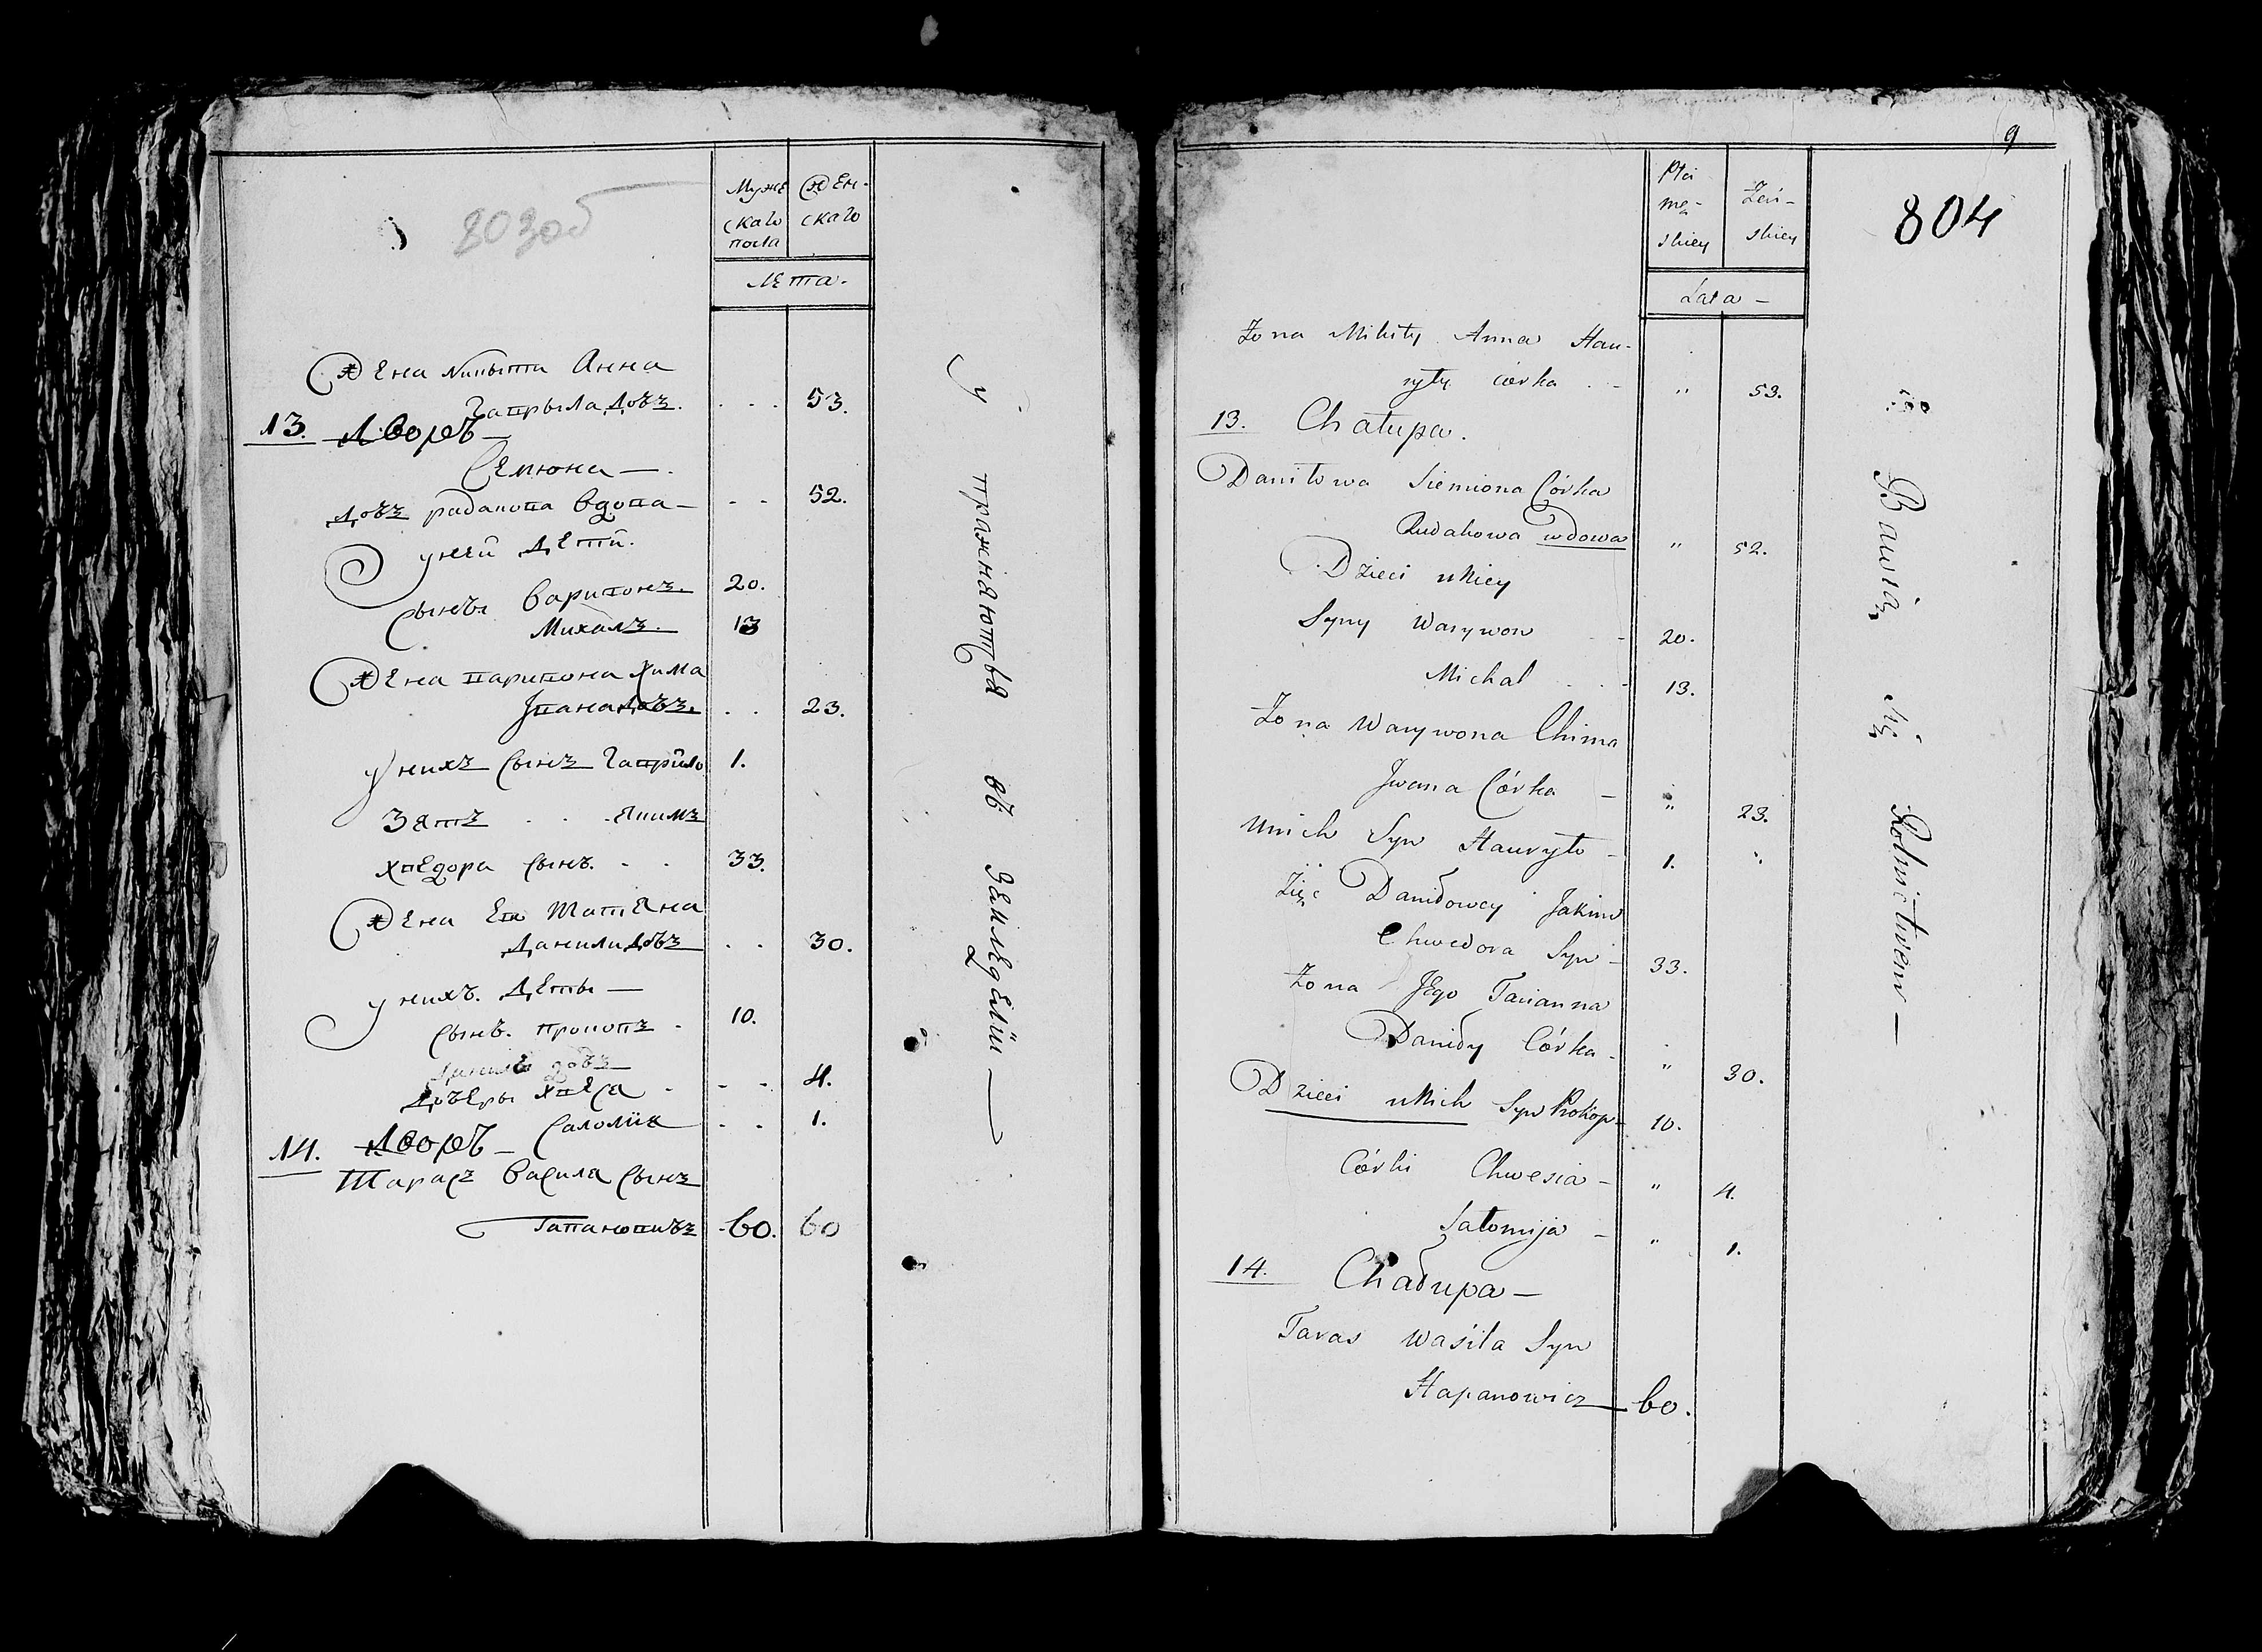 803об
Муже
скаго
пола
Жен-
скаго
Лета-
Жена Микиты Анна
Гаврыла дочь. . . . 53.
13. Дворъ-
Семіона —
дочь рудакова вдова - - - 52.
у неи дети.
Сынъ Варивонъ. 20.
Михалъ. 13
Жена Варивона Хима
Ивана дочь. . . 23.
у нихъ Сынъ Гаврило 1.
Зять . . . Якимъ
Хведора Сынъ. - . 33.
Жена Его Татяна
Данили дочь . . 30.
у нихъ. Дети —
Сынъ. Прокопъ - 10.
Дочеры Хвеся - - - 4.
Саломія . . 1.
14. Дворъ-
Тарасъ Васила Сынъ
Гапановичъ 60. 60
въ земледелии —
9
804
Płci
mę-
skiey
Żeń-
skiey
Lata —
Żona Mikity Anna Hau-
ryły córka . - " 53.
13. Chałupa.
Daniłowa Siemiona Córka
Rudakowa wdowa " 52.
Dzieci u Niey
Syny Warywon - 20.
Michał . . - 13.
Żona Warywona Chima
Jwana Córka — " 23.
U nich Syn Hauryło - 1. "
Zięć Daniłowey Jakim
Chwedora Syn - 33.
Żona JEgo Tacianna
Daniły Córka - " 30.
Dzieci u Nich Syn Prokop - 10.
Córki Chwesia - " 4.
Sałomija - " 1.
14. Chałupa —
Taras Wasila Syn
Hapanowicz 60.
Bawią się Rolnictwem —